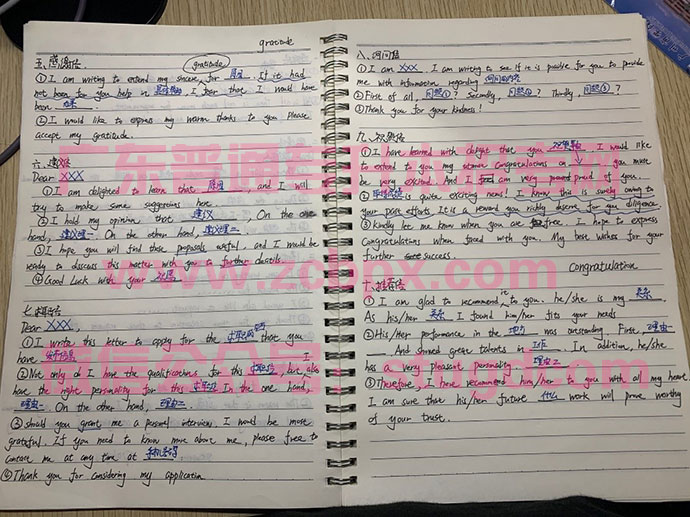 gratitude
五.感谢信
gratitude
① I am writing to extend my sincere for 原因. If it had
not been for you help in 某件事情, I fear that I would have
been 结果.
② I would like to express my warm thanks to you. Please
accept my gratitude.
六.建议信
Dear XXX
① I am delighted to learn that 原因, and I will
try to make some suggestions here.
② I hold my opinion that 建议. On the one
hand, 建议一. On the other hand, 建议二.
③ I hope you will find these proposals useful, and I would be
ready to discuss this matter with you to further details.
④ Good Luck with your
Dear XXX,
① I write this letter to apply for the that you
have
② Not only do I have the qualifications for this but also I
have the right personality for this In the one hand,
理由一. On the other hand, 理由二.
③ should you grant me a personal interview, I would be most
grateful. If you need to know more about me, please free to
contact me at any time at 手机号码
④ Thank you for considering my application
八.询问信
① I am XXX. I am writing to see if it is possible for you to provide
me with information regarding 询问的内容
② First of all, 问题①? Secondly, 问题②? Thirdly 问题③?
③ Thank you for your kindness!
九.祝贺信
① I have learned with delight that you I would like
to extend to you my congratulations on you must
be very excited. And I am very proud of you.
② is quite exciting news! I know this is surely owing to
your past efforts. It is a reward you richly deserve for you diligence
③ Kindly let me know when you are free. I hope to express
Congratulations when faced with you. My best wishes for your
further success.
Congratulation
十.推荐信
① I am glad to recommend it to you. he/she is my 关系.
As his/her 关系 I found him/her fits your needs
② His/Her performance in the 地方 was outstanding. First, 理由一
And showed great talents in 工作. In addition, he/she
has a very pleasant personality. 理由二
③ Therefore, I here recommend him/her to you with all my heart.
I am sure that his/her future work will prove worthy
of your trust.
www.zcbpx.com